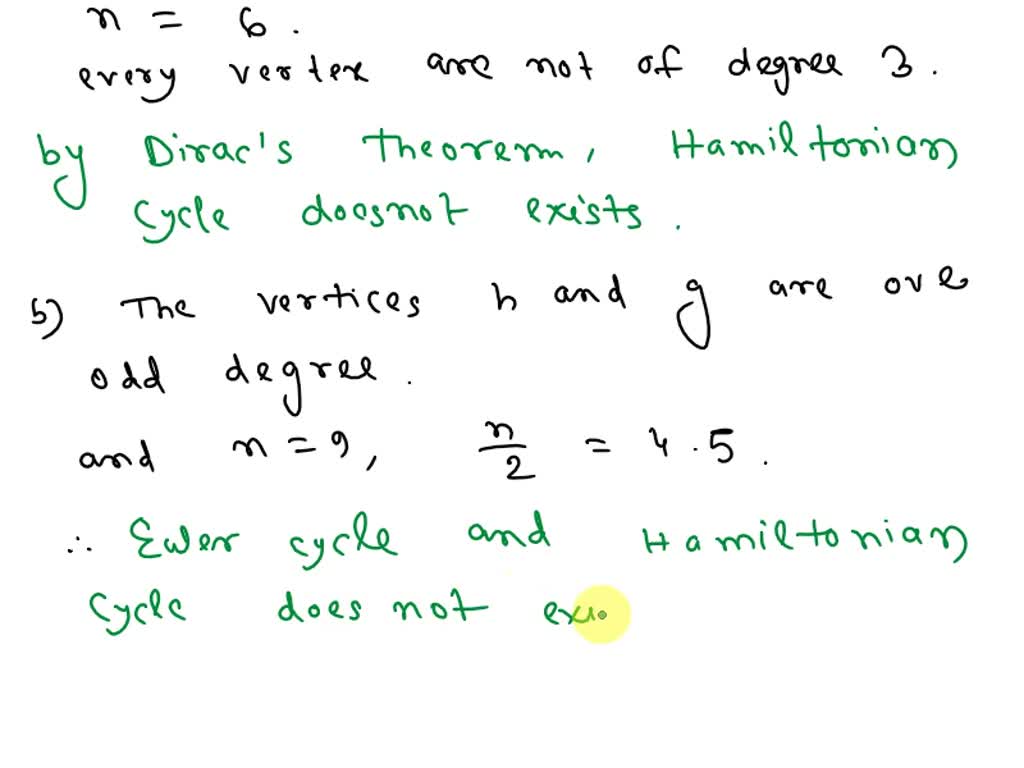 n = 6.
every vertex are not of degree 3.
by Dirac's Theorem, Hamiltonian
Cycle doesnot exists.
b) The vertices h and g are ove
odd degree.
and n = 9, n/2 = 4.5.
∴ Euler cycle and Hamiltonian
Cycle does not exi